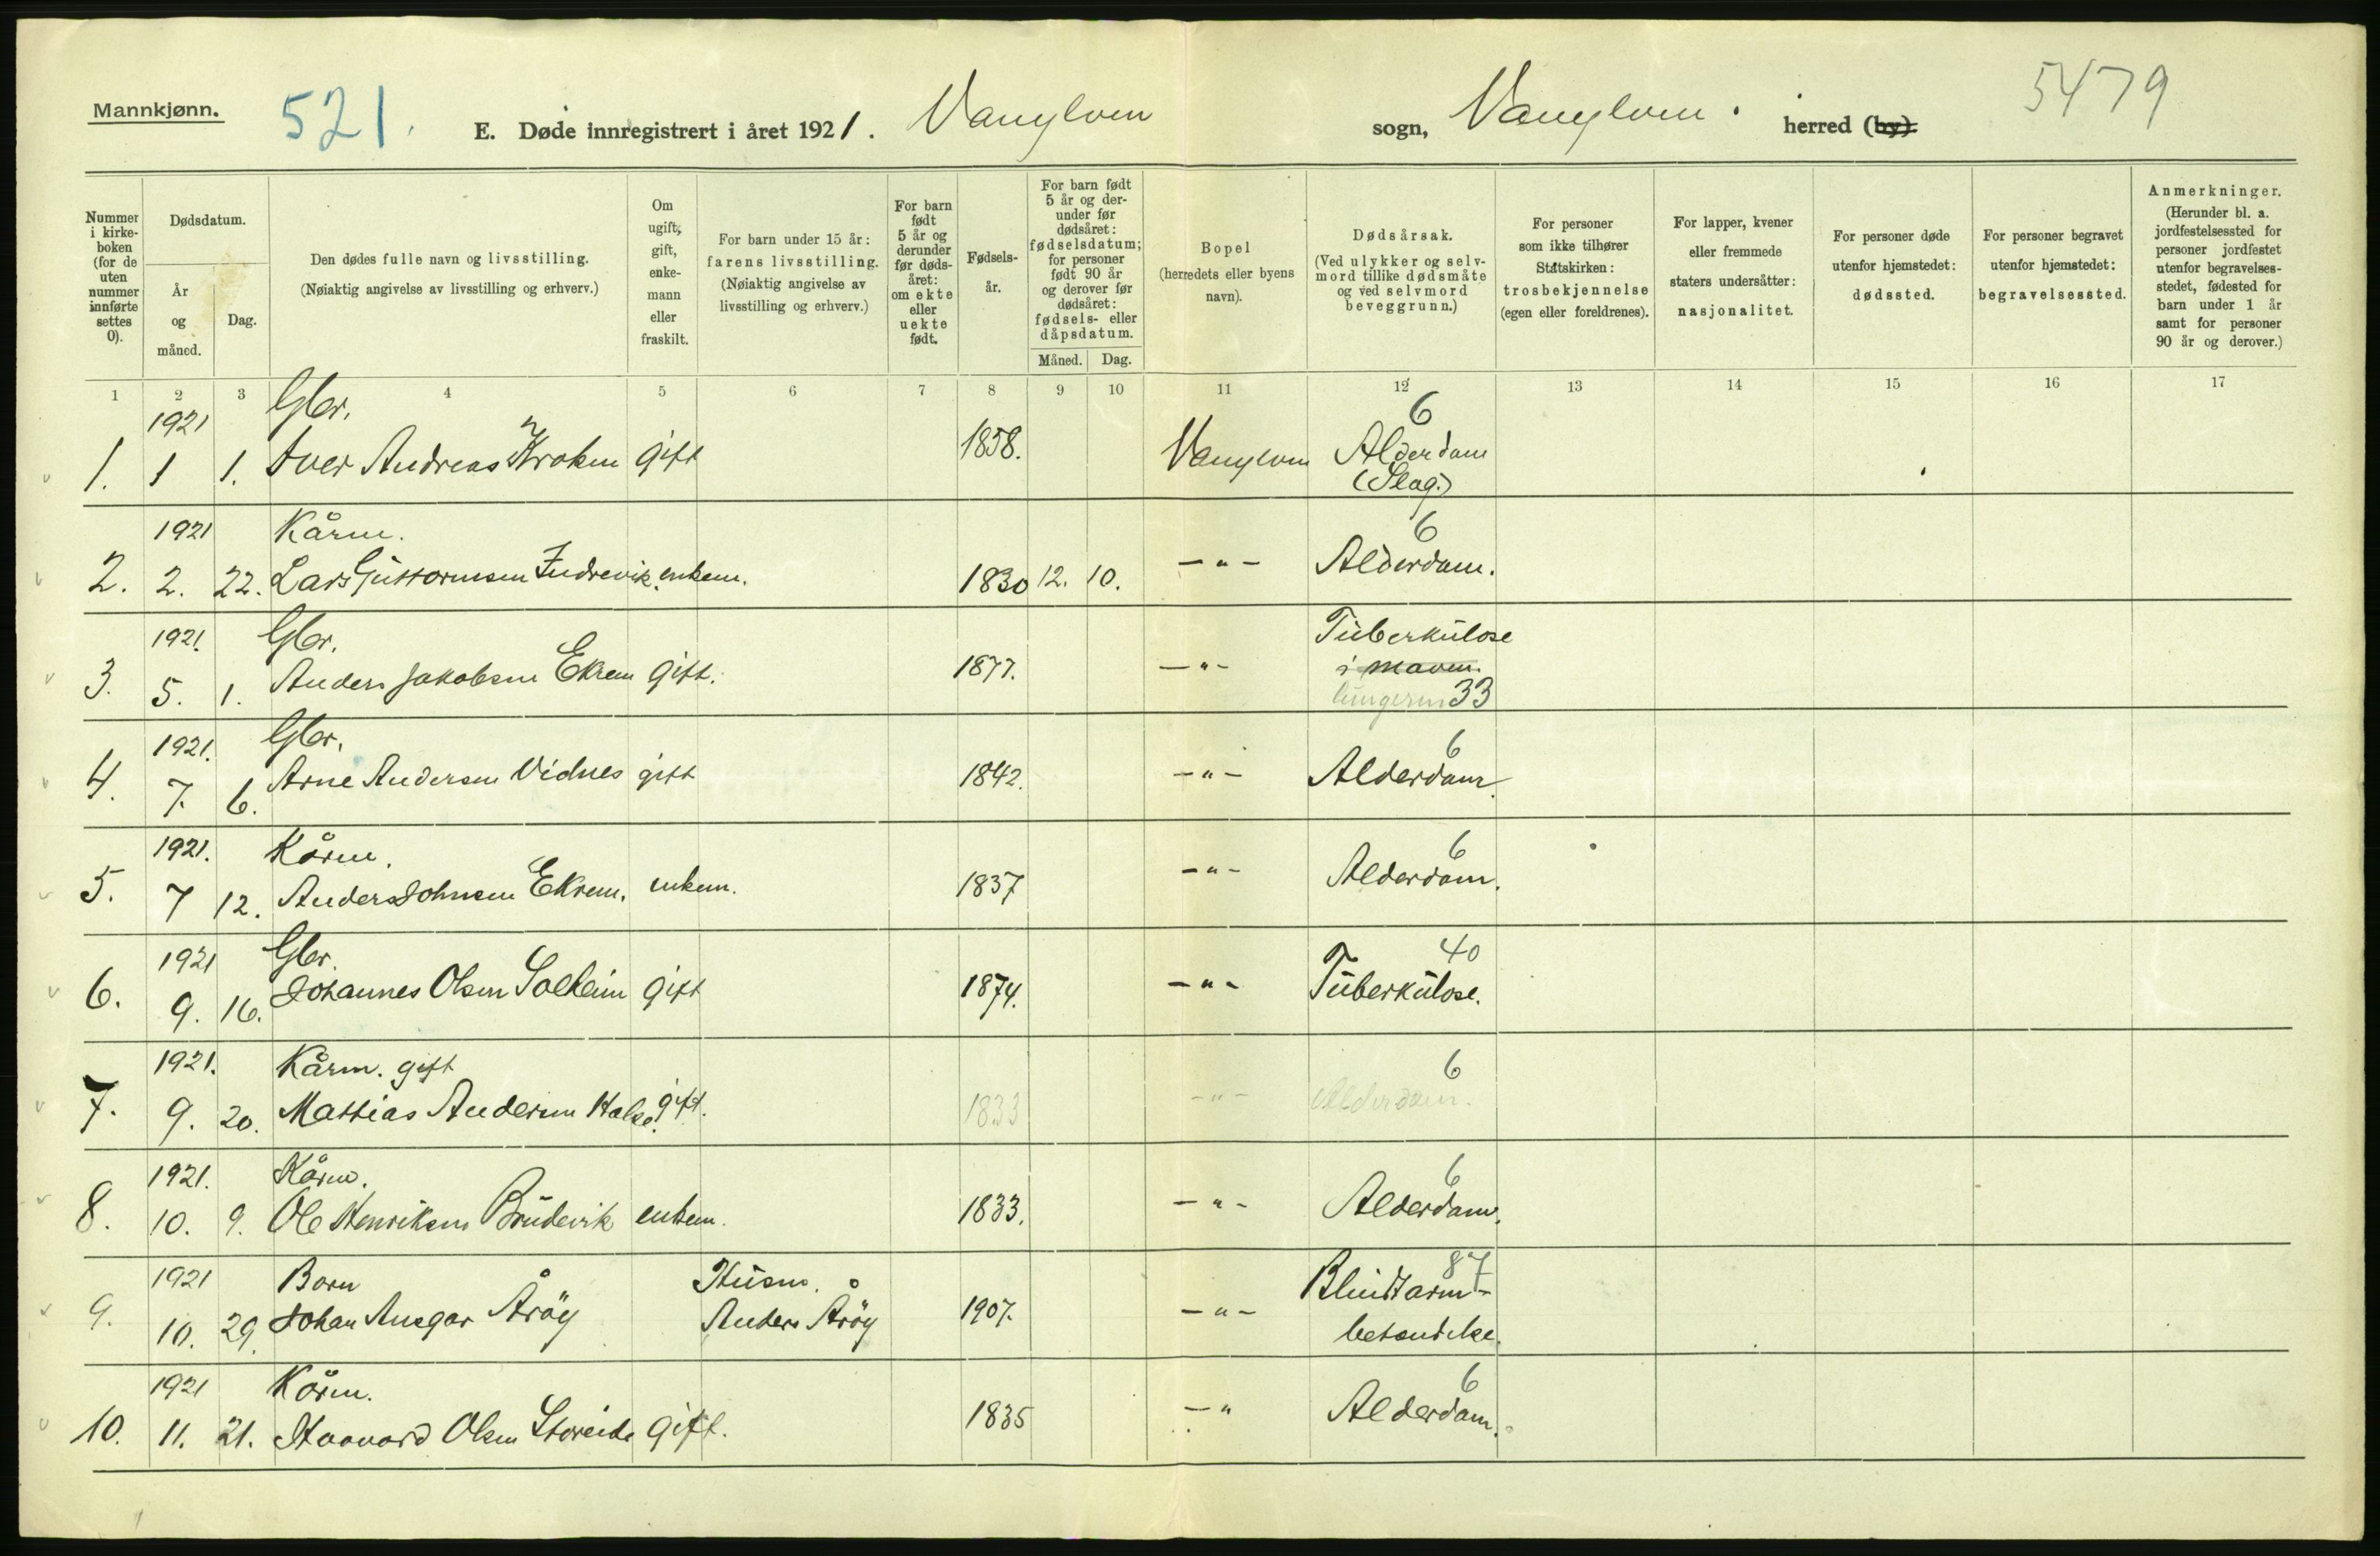 Mannkjønn.
521.
E. Døde innregistrert i året 1921. Vanylven sogn, Vanylven herred (by).
5479
Nummer i kirke-boken (for de uten nummer innførte settes 0).
Dødsdatum.
År og måned.
Dag.
Den dødes fulle navn og livsstilling.
(Nøiaktig angivelse av livsstilling og erhverv.)
Om ugift, gift, enke-mann eller fraskilt.
For barn under 15 år: farens livsstilling.
(Nøiaktig angivelse av livsstilling og erhverv.)
For barn født 5 år og derunder før døds-året: om ekte eller uekte født.
Fødsels-år.
For barn født 5 år og der-under før dødsåret: fødselsdatum; for personer født 90 år og derover før dødsåret: fødsels- eller dåpsdatum.
Måned. Dag.
Bopel
(herredets eller byens navn).
Dødsårsak.
(Ved ulykker og selv-mord tillike dødsmåte og ved selvmord beveggrunn.)
For personer som ikke tilhører Statskirken: trosbekjennelse (egen eller foreldrenes).
For lapper, kvener eller fremmede staters undersåtter: nasjonalitet.
For personer døde utenfor hjemstedet: dødssted.
For personer begravet utenfor hjemstedet: begravelsessted.
Anmerkninger.
(Herunder bl. a. jordfestelsessted for personer jordfestet utenfor begravelses-stedet, fødested for barn under 1 år samt for personer 90 år og derover.)
1 2 3 4 5 6 7 8 9 10 11 12 13 14 15 16 17
1921 Gbr. 6
1. 1 1. Iver Andreas Kroken gift 1858. Vanylven Alderdom
(Slag.)
1921 Kårm. 6
2. 2. 22. Lars Guttormsen Indrevik. enkem. 1830 12. 10. -"- Alderdom.
1921. Gbr. Tüberkülose
3. 5. 1. Anders Jakobsen Ekrem gift. 1877. -"- i maven.
lungerne 33
1921. Gbr. 6
4. 7. 6. Arne Andersen Vidnes gift 1842. -"- Alderdom.
1921. Kårm. 6
5. 7 12. Anders Johnsen Ekrem. enkem. 1837 -"- Alderdom.
1921 Gbr. 40
6. 9. 16. Johannes Olsen Solheim gift 1874. -"- Tüberkülose.
1921. Kårm. gift 6
7. 9. 20. Mattias Andersen Halse. gift. 1833 -"- Alderdom.
1921. Kårm. 6
8. 10. 9. Ole Henriksen Brüdevik enkem. 1833. -"- Alderdom.
1921 Barn Hüsm. 87
9. 10. 29. Johan Ansgar Åröy Anders Åröy 1907. -"- Blindtarm-
betendelse.
1921 Kårm. 6
10. 11. 21. Haavard Olsen Storeide gift. 1835 -" Alderdom.